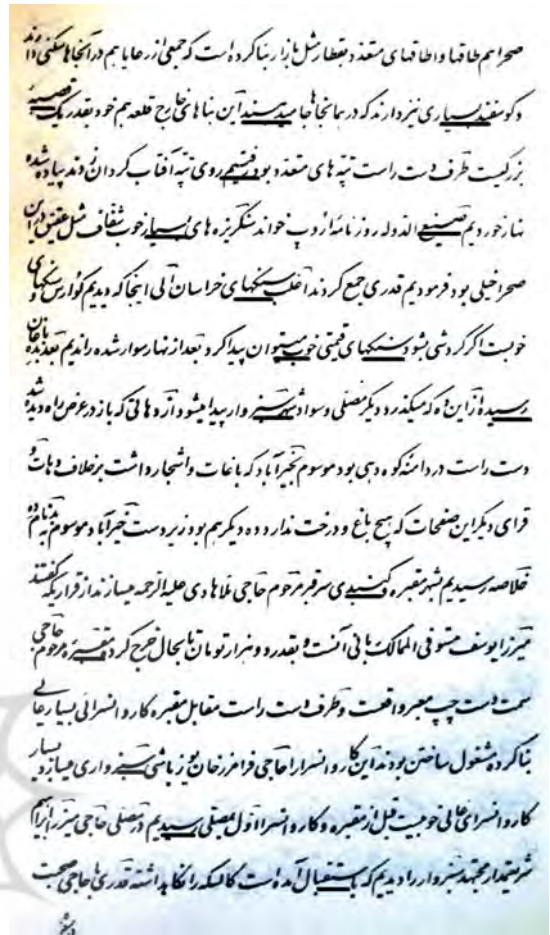 صحرا هم طاقها و اطاقهای متعدد بقطار مثل بازار بنا کرده است که جمعی از رعایا هم در آنجاها سکنی دارند
و گوسفند بسیاری نیز دارند که در همانجاها جا میدهند این بناهای خارج قلعه هم خود بقدر یک قصبه
بزرگیست طرف دست راست تپه های متعدد بود رفتیم روی تپه آفتاب گردان زدند پیاده شده
نهار خوردیم صنیع الدوله روزنامه اروپ خواند سنگریزه های بسیار خوب شفاف مثل عقیق در این
صحرا خیلی بود فرمودیم قدری جمع کردند اغلب سنگهای خراسان الی اینجا که دیدیم کوارس و سنگهای
خوبست اگر گردشی بشود سنگهای قیمتی خوب میتوان پیدا کرد بعد از نهار سوار شده راندیم
رسیده از این ده که میگذرد دیگر مصلی و سواد شهر سبزوار پیدا میشود از دهاتی که باز در عرض راه دیده شد
دست راست در دامنه کوه دهی بود موسوم بخیرآباد که باغات و اشجار داشت برخلاف دهات و
قرای دیگر این صفحات که هیچ باغ و درخت ندارد ده دیگر هم بود زیر دست خیرآباد موسوم به
خلاصه رسیدیم بشهر مقبره و گنبدی سر قبر مرحوم حاجی ملاهادی علیه الرحمه میسازند از قراریکه گفتند
میرزا یوسف مستوفی الممالک بانی آنست و بقدر دو هزار تومان تا بحال خرج کرده مقبره مرحوم حاجی
سمت دست چپ معبر واقعست و طرف دست راست مقابل مقبره کاروانسرائی بسیار عالی
بنا کرده مشغول ساختن بودند این کاروانسرا را حاجی فرامرز خان یوزباشی سبزواری میسازد بسیار
کاروانسرای عالی خوبیست قبل از مقبره و کاروانسرا اول بمصلی رسیدیم در مصلی حاجی میرزا ابراهیم
شریعتمدار مجتهد سبزوار را دیدیم که باستقبال آمده است کالسکه را نگاهداشته قدری با حاجی صحبت